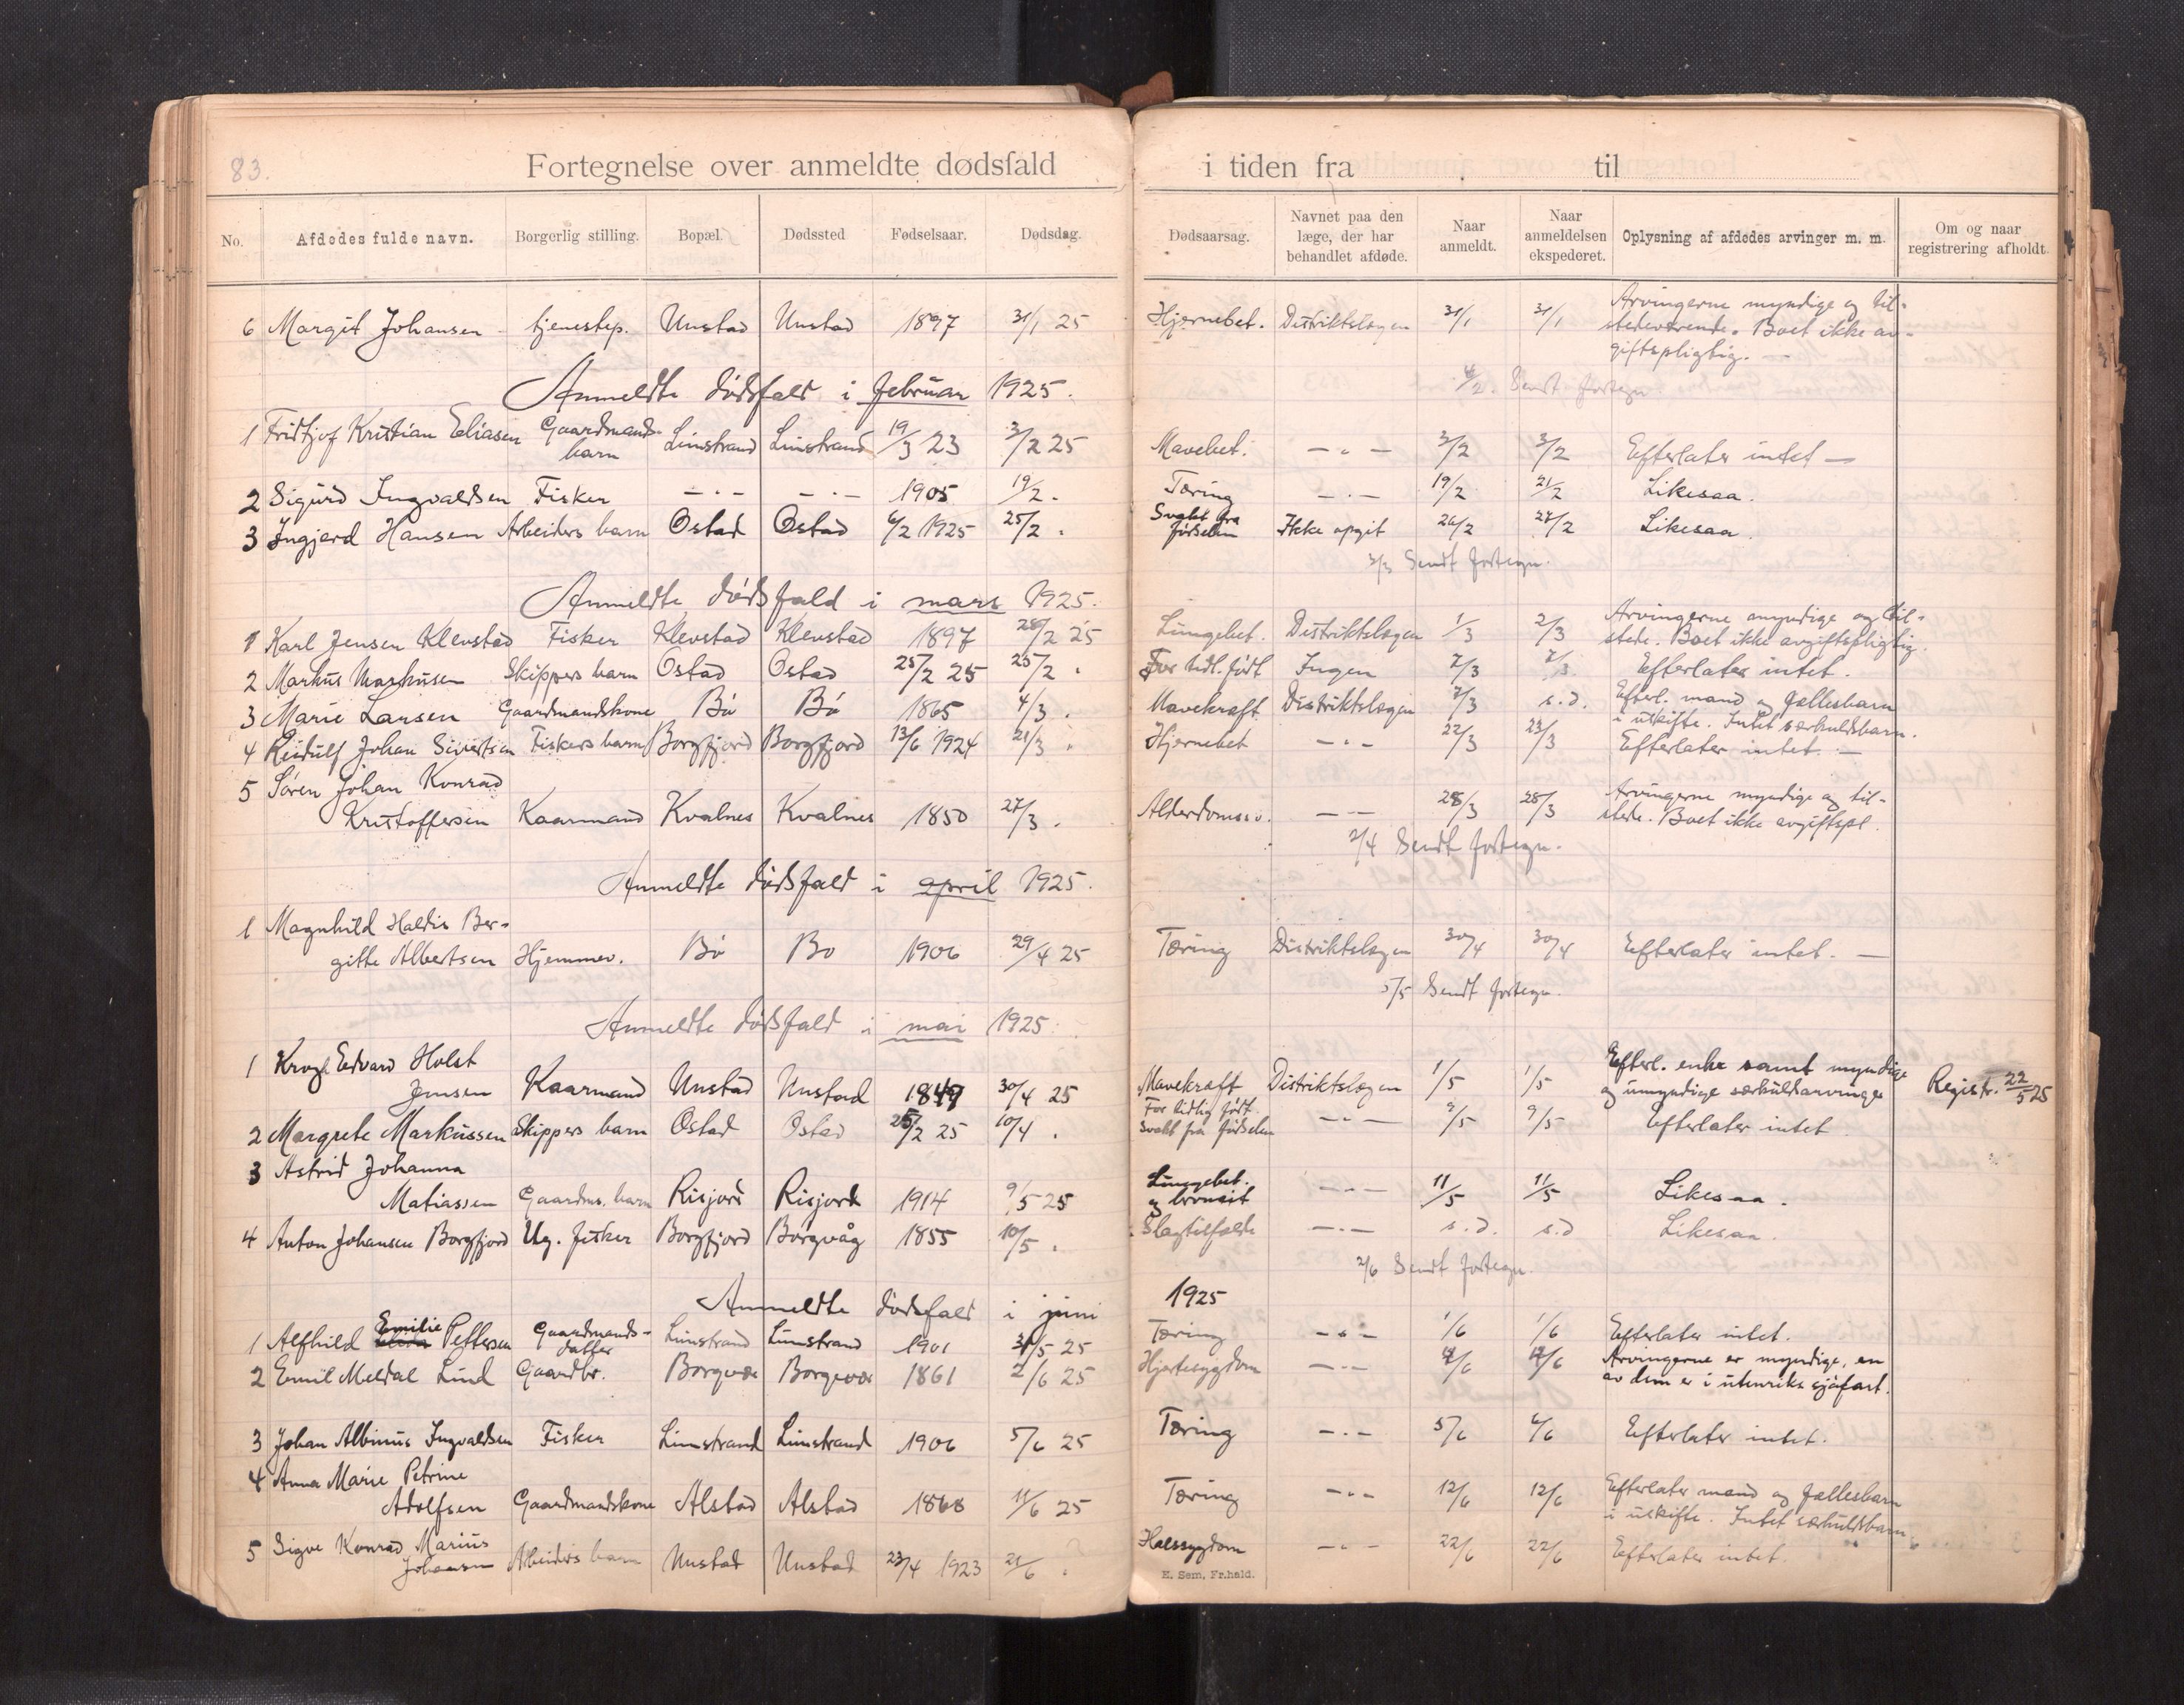 83.
Fortegnelse over anmeldte dødsfald i tiden fra til
No. Afdødes fulde navn. Borgerlig stilling. Bopæl. Dødssted Fødselsaar. Dødsdag. Dødsaarsag. Navnet paa den læge, der har behandlet afdøde. Naar anmeldt. Naar anmeldelsen ekspederet. Oplysning af afdødes arvinger m. m. Om og naar registrering afholdt.
6 Margit Johansen tjenestep. Unstad Unstad 1897 31/1 25 Hjernebet. Distriktslægen 31/1 31/1 Arvingerne myndige og til-
stedeværende. Boet ikke av-
giftspligtig. —
Anmeldte dødsfald i februar 1925. 4/2. Sendt fortegn.
1 Fridtjof Kristian Eliasen Gaardmands- barn Limstrand Limstrand 19/3 23 3/2 25 Mavebet. — " — 3/2 3/2 Efterlater intet —
2 Sigurd Ingvaldsen Fisker — " — — " — 1905 19/2 . Tæring — " — 19/2 21/2 Likesaa.
3 Ingjerd Hansen Arbeiders barn Ostad Ostad 6/2 1925 25/2 . Svakt fra fødselen Ikke opgit 26/2 27/2 Likesaa.
3/3 Sendt fortegn.
Anmeldte dødsfald i mars 1925.
1 Karl Jensen Klevstad Fisker Klevstad Klevstad 1897 28/2 25 Lungebet. Distriktslægen 1/3 2/3 Arvingerne myndige og til-
stede. Boet ikke avgiftspligtig.
2 Markus Markusen Skippers barn Ostad Ostad 25/2 25 25/2 . For tidl. født Ingen 7/3 7/3 Efterlater intet.
3 Marie Larsen Gaardmandskone Bø Bø 1865 4/3 . Mavekræft Distriktslægen 7/3 s.d. Efterl. mand og fællesbarn
i uskifte. Intet særkuldsbarn.
4 Reidulf Johan Sivertsen Fiskers barn Borgfjord Borgfjord 13/6 1924 21/3 . Hjernebet — " — 22/3 23/3 Efterlater intet. —
5 Søren Johan Konrad
Kristoffersen Kaarmand Kvalnes Kvalnes 1850 27/3 . Alderdomssv. — " — 28/3 28/3 Arvingerne myndige og til-
stede. Boet ikke avgiftspl.
2/4 Sendt fortegn.
Anmeldte dødsfald i april 1925.
1 Magnhild Haldis Ber-
gitte Albertsen Hjemmev. Bø Bø 1906 29/4 25 Tæring Distriktslægen 30/4 30/4 Efterlater intet. —
5/5 Sendt fortegn.
Anmeldte dødsfald i mai 1925.
1 Edvard Holst
Jensen Kaarmand Unstad Unstad 1849 30/4 25 Mavekræft Distriktslægen 1/5 1/5 Efterl. enke samt myndige
og umyndige særkuldsarvinger Registr. 22/5 25
2 Margrete Markussen Skippers barn Ostad Ostad 25/2 25 10/4 . For tidlig født svakt fra fødselen — " — 9/5 9/5 Efterlater intet
3 Astrid Johanna
Matiassen Gaardm. barn Risjord Risjord 1914 9/5 25 Lungebet. og bronkit — " — 11/5 11/5 Likesaa.
4 Anton Johansen Borgfjord Ug. fisker Borgfjord Borgvåg 1855 10/5 . Slagtilfælde — " — s.d. s.d Likesaa.
2/6 Sendt fortegn.
Anmeldte dødsfald i juni 1925
1 Alfhild Emilie Pettersen Gaardmands- datter Limstrand Limstrand 1901 31/5 25 Tæring — " — 1/6 1/6 Efterlater intet.
2 Emil Meldal Lind Gaardbr. Borgvær Borgevær 1861 2/6 25 Hjertesygdom — " — 4/6 4/6 Arvingerne er myndige, en
av dem er i utenriks sjøfart.
3 Johan Albinus Ingvaldsen Fisker Limstrand Limstrand 1906 5/6 25 Tæring — " — 5/6 6/6 Efterlater intet.
4 Anna Marie Petrine
Adolfsen Gaardmandskone Alstad Alstad 1868 11/6 25 Tæring — " — 12/6 12/6 Efterlater mand og fællesbarn
i uskifte. Intet særkuldsbarn.
5 Sigve Konrad Marius
Johansen Arbeiders barn Unstad Unstad 23/4 1923 21/6 . Halssygdom — " — 22/6 22/6 Efterlater intet.
E. Sem, Fr.hald.